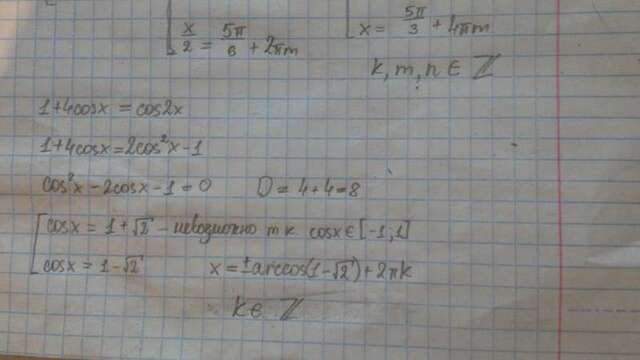 x/2 = 5π/6 + 2πm
x = 5π/3 + 4πm
k, m, n ∈ ℤ
1+4cosx = cos2x
1+4cosx = 2cos²x - 1
cos²x - 2cosx - 1 = 0    D = 4+4=8
cosx = 1+√2 - невозможно т к. cosx ∈ [-1, 1]
cosx = 1-√2    x = ±arccos(1-√2) + 2πk
k ∈ ℤ